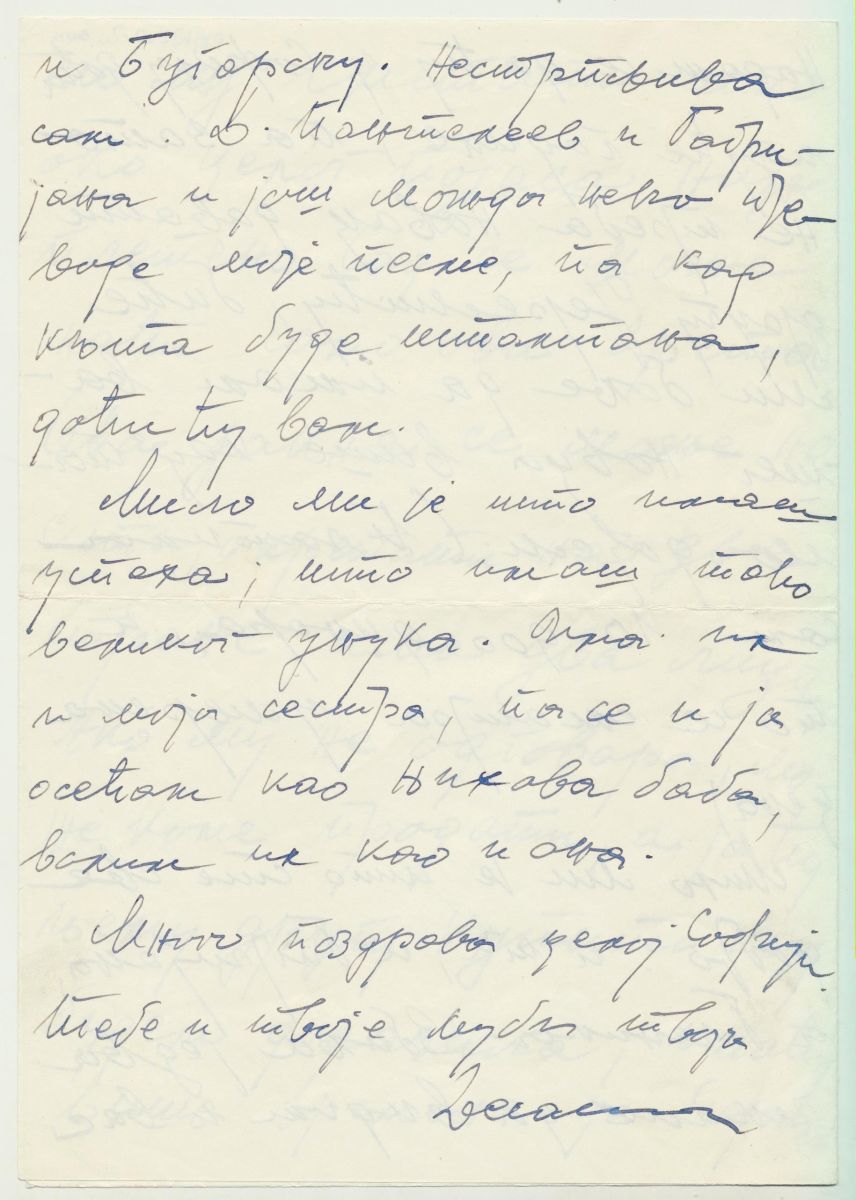 и Бугарску. Нестрпљива
сам. Д. Пантелеев и Габри-
јана и још можда неко пре-
воде моје песме, па кад
књига буде штампана,
доћи ћу вам.
Мило ми је што имаш
успеха, што имаш тако
великог унука. Има их
и моја сестра, па се и ја
осећам као њихова баба,
волим их као и она.
Много поздрава целој Софији.
Тебе и твоје љуби твоја
Десанка